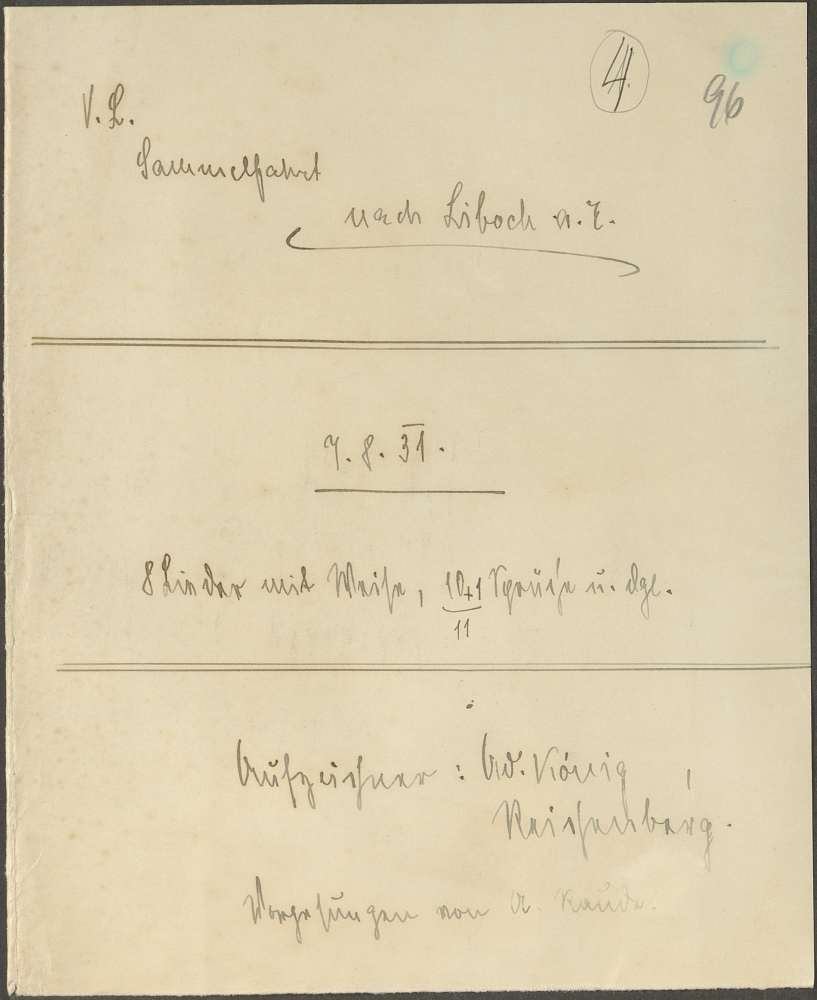 4.
96
V. L.
Sammelfahrt
nach Liboch a. E.
7. 8. 31.
8 Lieder mit Weise, 10+1 Sprüche u. dgl.
11
Aufzeichner: Ad. König,
Reichenberg.
Vorgesungen von A.